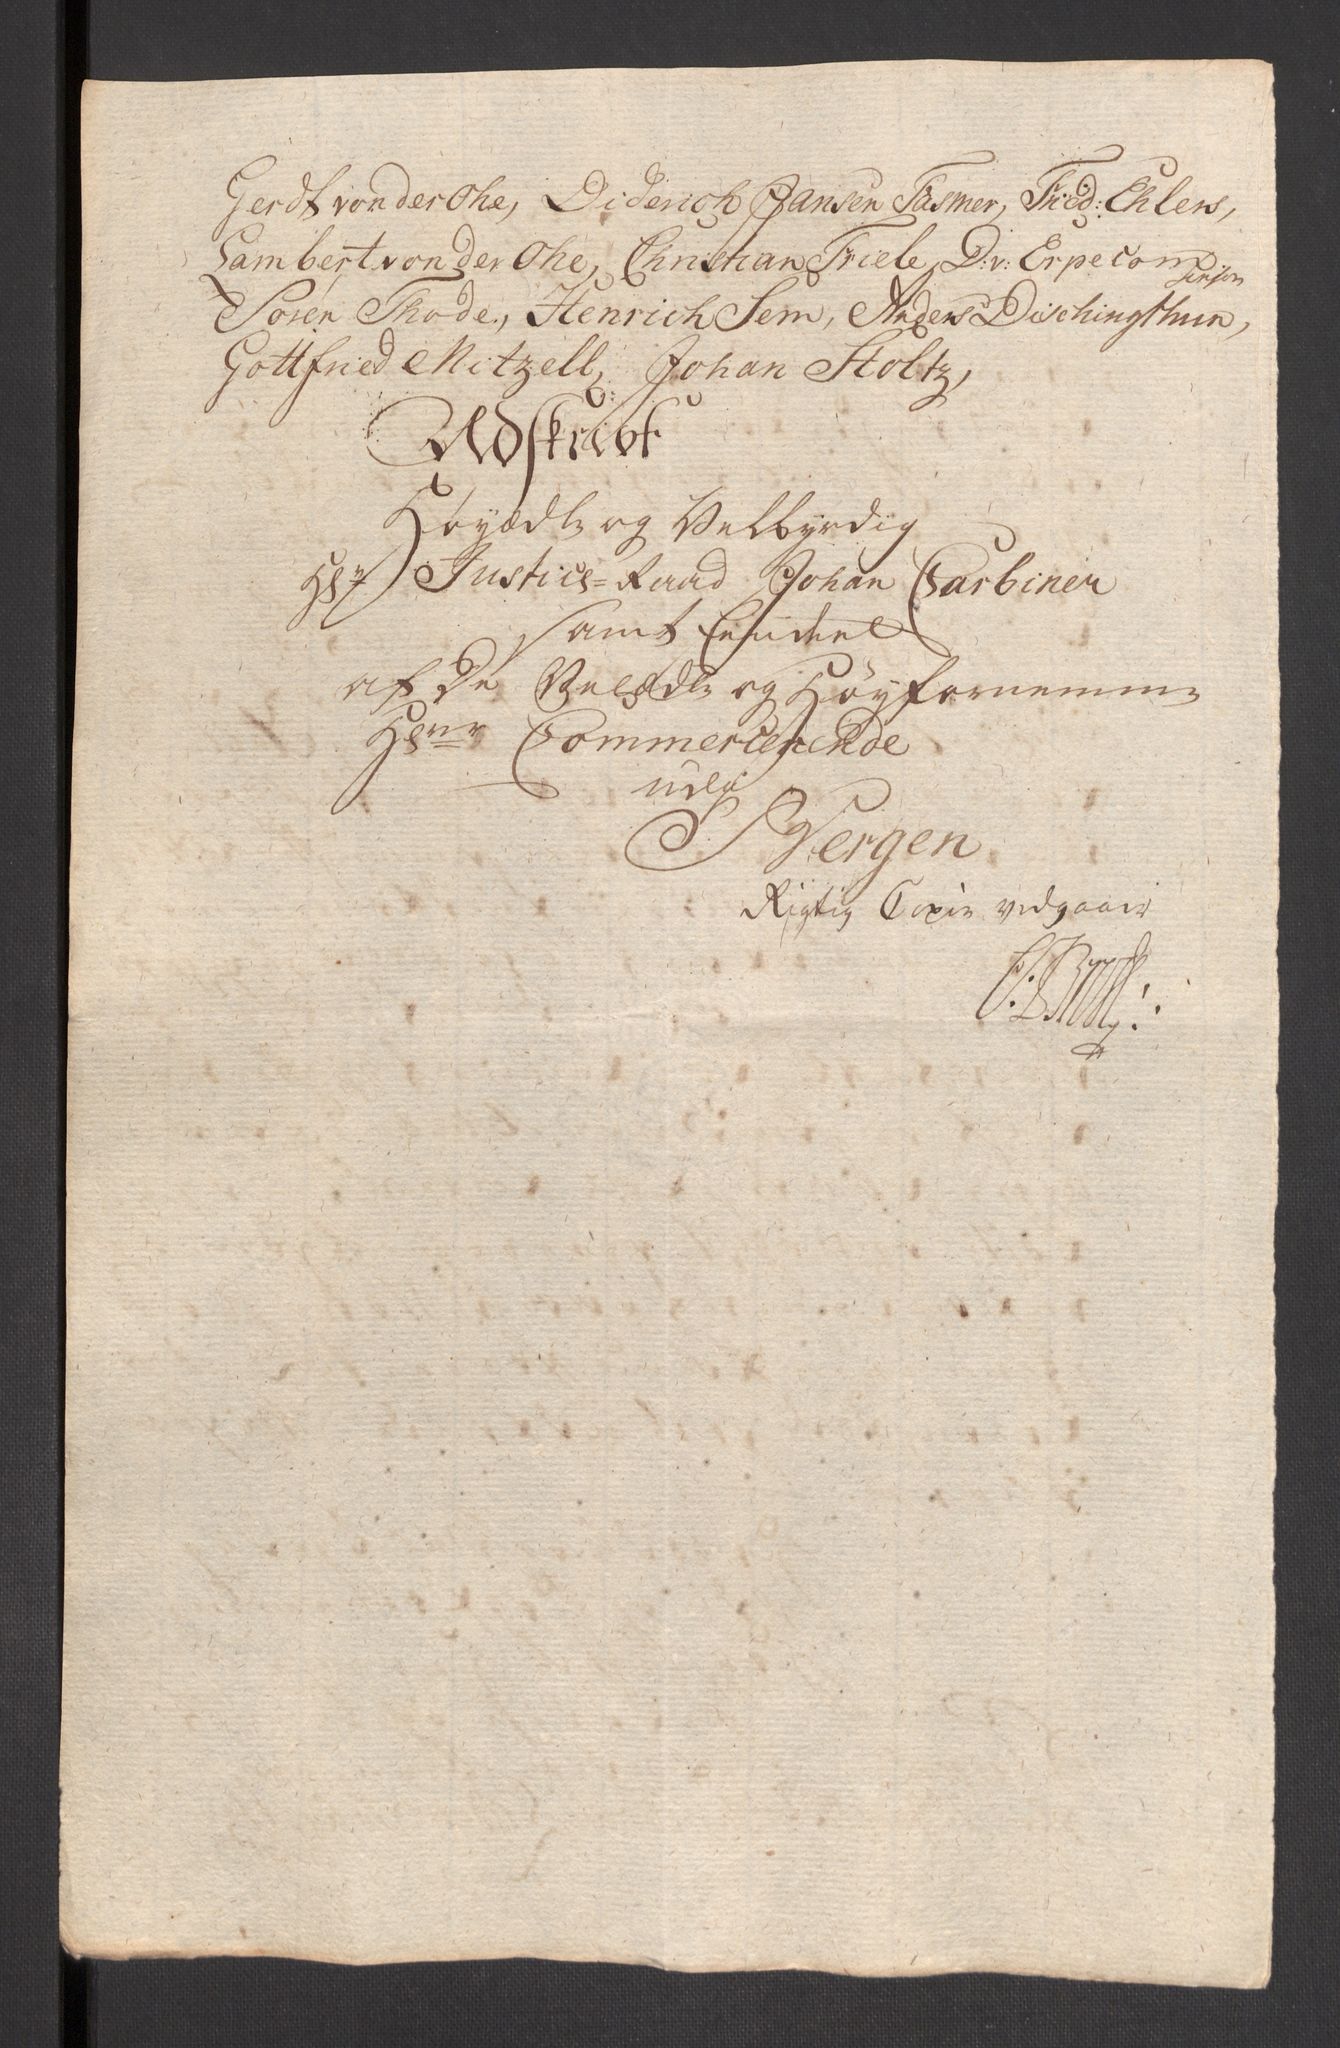 Gerdt von der Ohe, Diderich Jansen Fasmer, Fried: Ehlers,
Lambert von der Ohe, Christian Friele, D: v: Erpecom
Senior
Soren Thode, Henrich Sem, Anders Dischingthun,
Gottfried Mitzell, Johan Stoltz,
Udskrivt
Høyædle og Velbyrdig
Hr Justice=Raad Johan Garbiner
samt Eendeel
af De Velædle og Høyfornemme
Herr Commercerende
udi
Bergen
Rigtig Copie vedgaaer